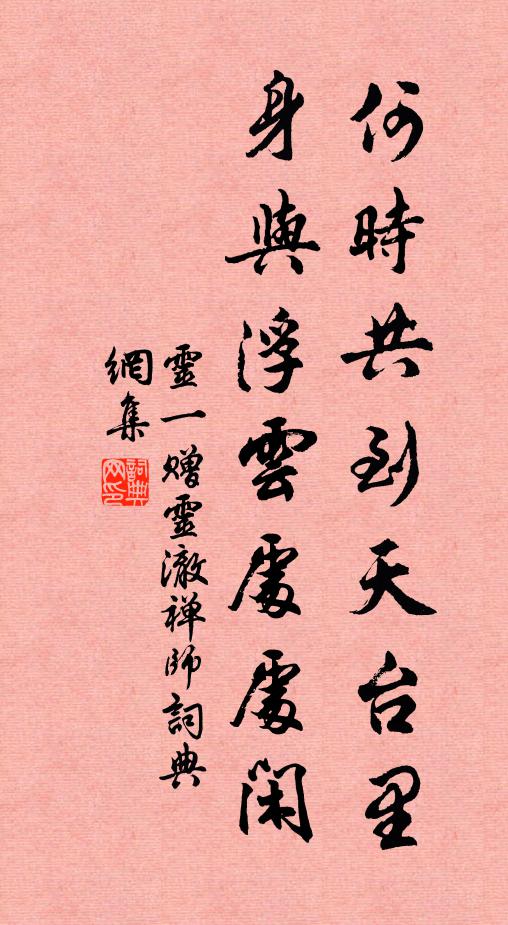 何時共到天台里
身與浮雲處處閑
靈一贈靈澈禅師詞典
網集
詞典網印